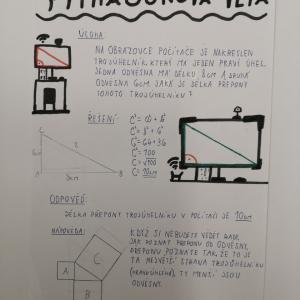 PYTHAGOROVA VĚTA
ÚLOHA:
NA OBRAZOVCE POČÍTAČE JE NAKRESLEN
TROJÚHELNÍK, KTERÝ MÁ JEDEN PRAVÍ ÚHEL.
JEDNA ODVĚSNA MÁ DÉLKU 8CM A DRUHÁ
ODVĚSNA 6CM. JAKÁ JE DÉLKA PŘEPONY
TOHOTO TROJÚHELNÍKU?
ŘEŠENÍ:
C
A
8cm
B
64+36
C²=100
C=√100
C=10cm
ODPOVĚĎ:
DÉLKA PŘEPONY TROJÚHELNÍKU V POČÍTAČI JE 10cm
NÁPOVĚDA:
A
C
B
KDYŽ SI NEBUDETE VĚDĚT RADY,
JAK POZNAT PŘEPONU OD ODVĚSNY,
PŘEPONU POZNÁTE TAK, ŽE TO JE
TA NEJVĚTŠÍ STRANA TROJÚHELNÍKU
TY MENŠÍ JSOU
ODVĚSNY.